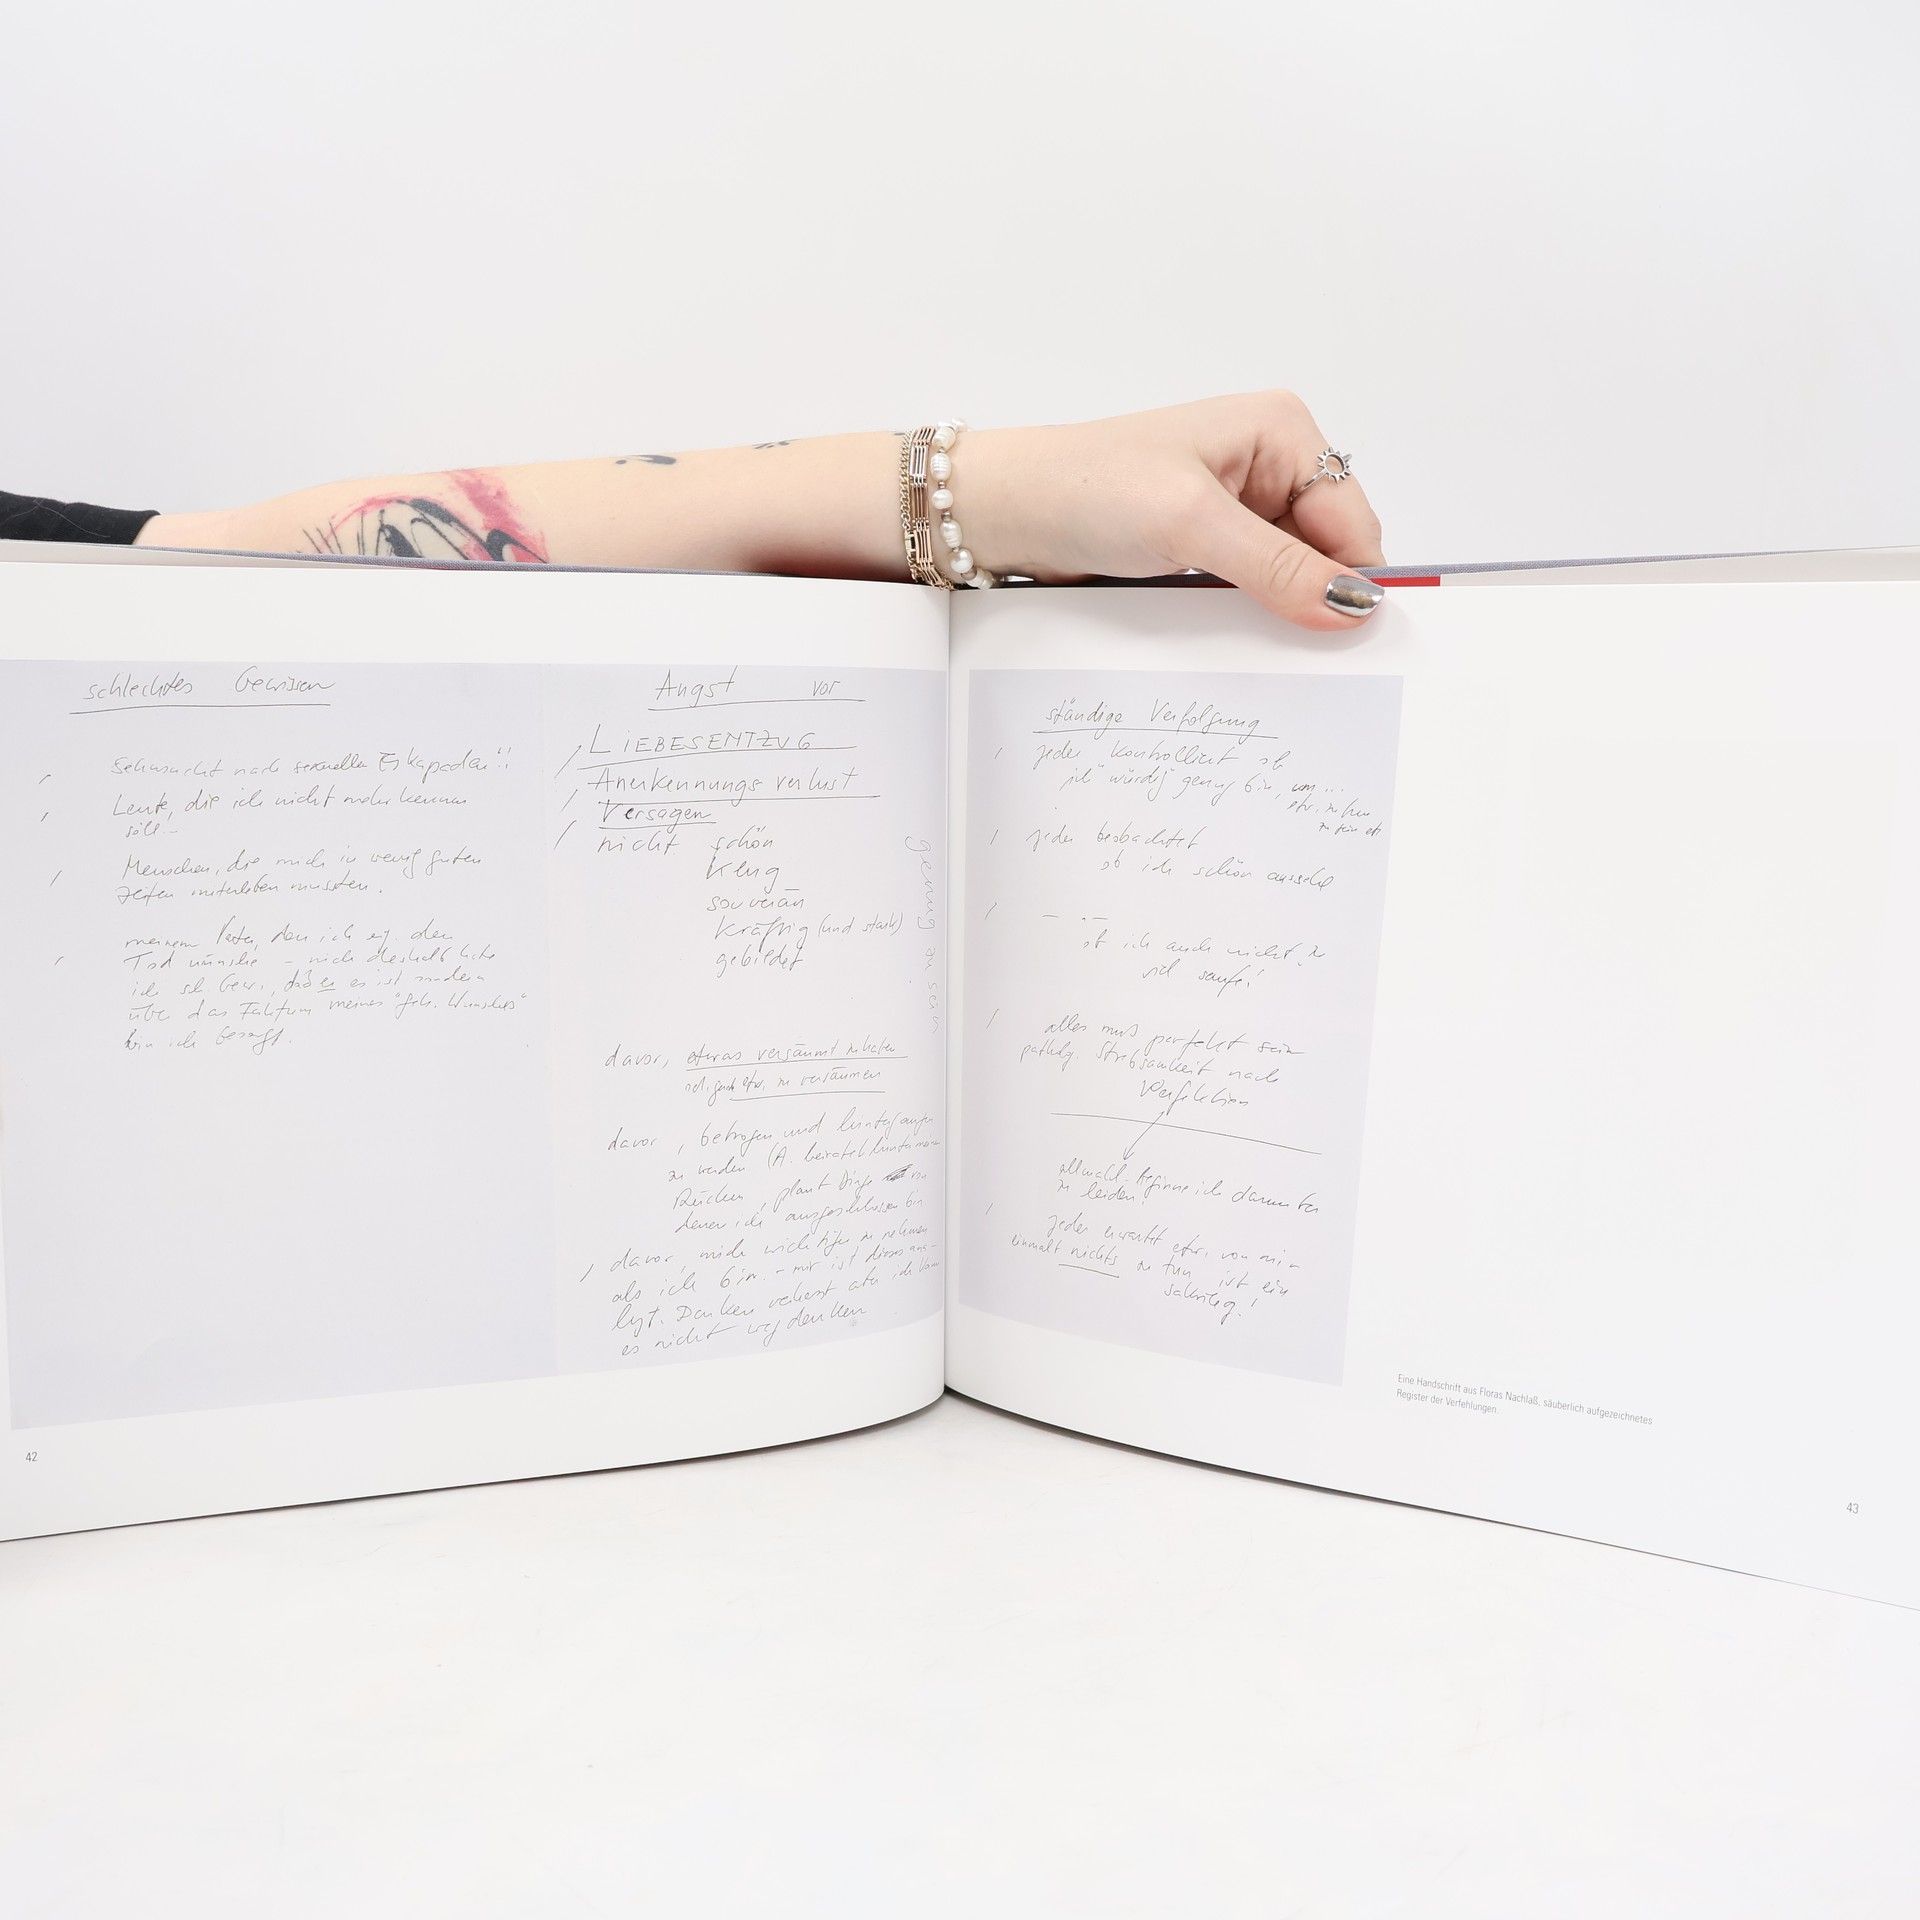 schlechtes Gewissen
Sehnsucht nach sexuellen Eskapaden!!
Leute, die ich nicht mehr kennen
soll–
Menschen, die mich in wenig guten
Zeiten miterleben mussten.
meinem Vater, dem ich eig. den
Tod wünsche – nich deshalb habe
ich schl. Gew., daß er es ist sondern
über das Faktum meines "geh. Wunsches"
bin ich besorgt.
Angst vor
LIEBESENTZUG
Anerkennungsverlust
Versagen
nicht schön
klug
souverän
kräftig (und stark)
gebildet
genug zu sein
davor, etwas versäumt zu haben
od. grad etw. zu versäumen
davor, betrogen und hintergangen
zu werden (A. heiratet hinter meinem
Rücken, plant Dinge von
denen ich ausgeschlossen bin
davor, mich wichtiger zu nehmen
als ich bin. – mir ist dieses
Danken verhasst aber ich kann
es nicht wegdenken
ständige Verfolgung
jeder kontrolliert ob
ich "würdig" genug bin, um...
etw. zu tun
zu sein etc
jeder beobachtet
ob ich schön aussehe
— „ —
ob ich auch nicht zu
viel saufe!
alles muß perfekt sein
patholg. Strebsamkeit nach
Perfektion
allmähl. beginne ich darunter
zu leiden!
jeder erwartet etw. von mir
einmal nichts zu tun ist ein
Sakrileg!
Eine Handschrift aus Floras Nachlaß, säuberlich aufgezeichnetes
Register der Verfehlungen.
42
43